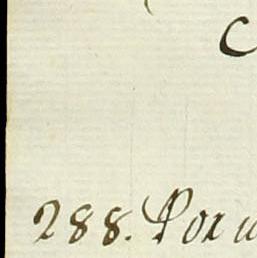 C
288. Por